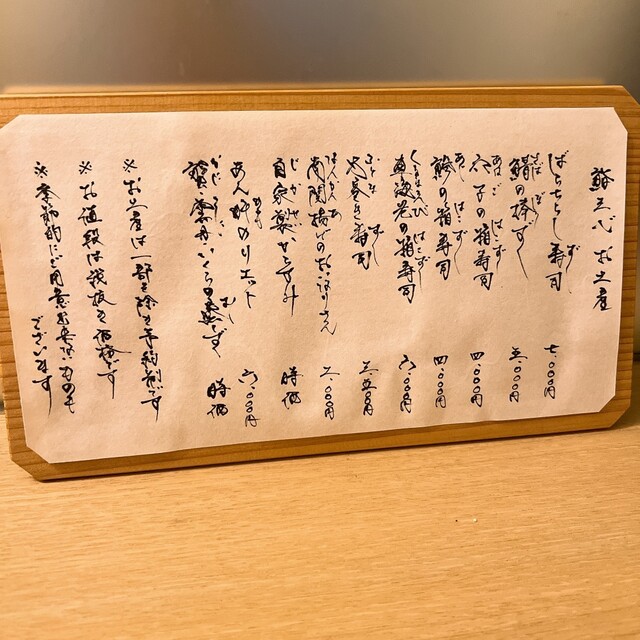 お土産
ばらちらし寿司 七、〇〇〇円
鯖の棒ずし 五、〇〇〇円
穴子の箱寿司 四、〇〇〇円
鯵の箱寿司 四、〇〇〇円
車海老の箱寿司 六、〇〇〇円
太巻き寿司 三、五〇〇円
南関揚げのおいなりさん 二、〇〇〇円
自家製からすみ 時価
あん肝のリエット 六、〇〇〇円
いくらの蒸ずし 時価
※お土産は一部を除き予約制です
※お値段は税抜き価格です
※季節的にご用意出来ないものも
ございます